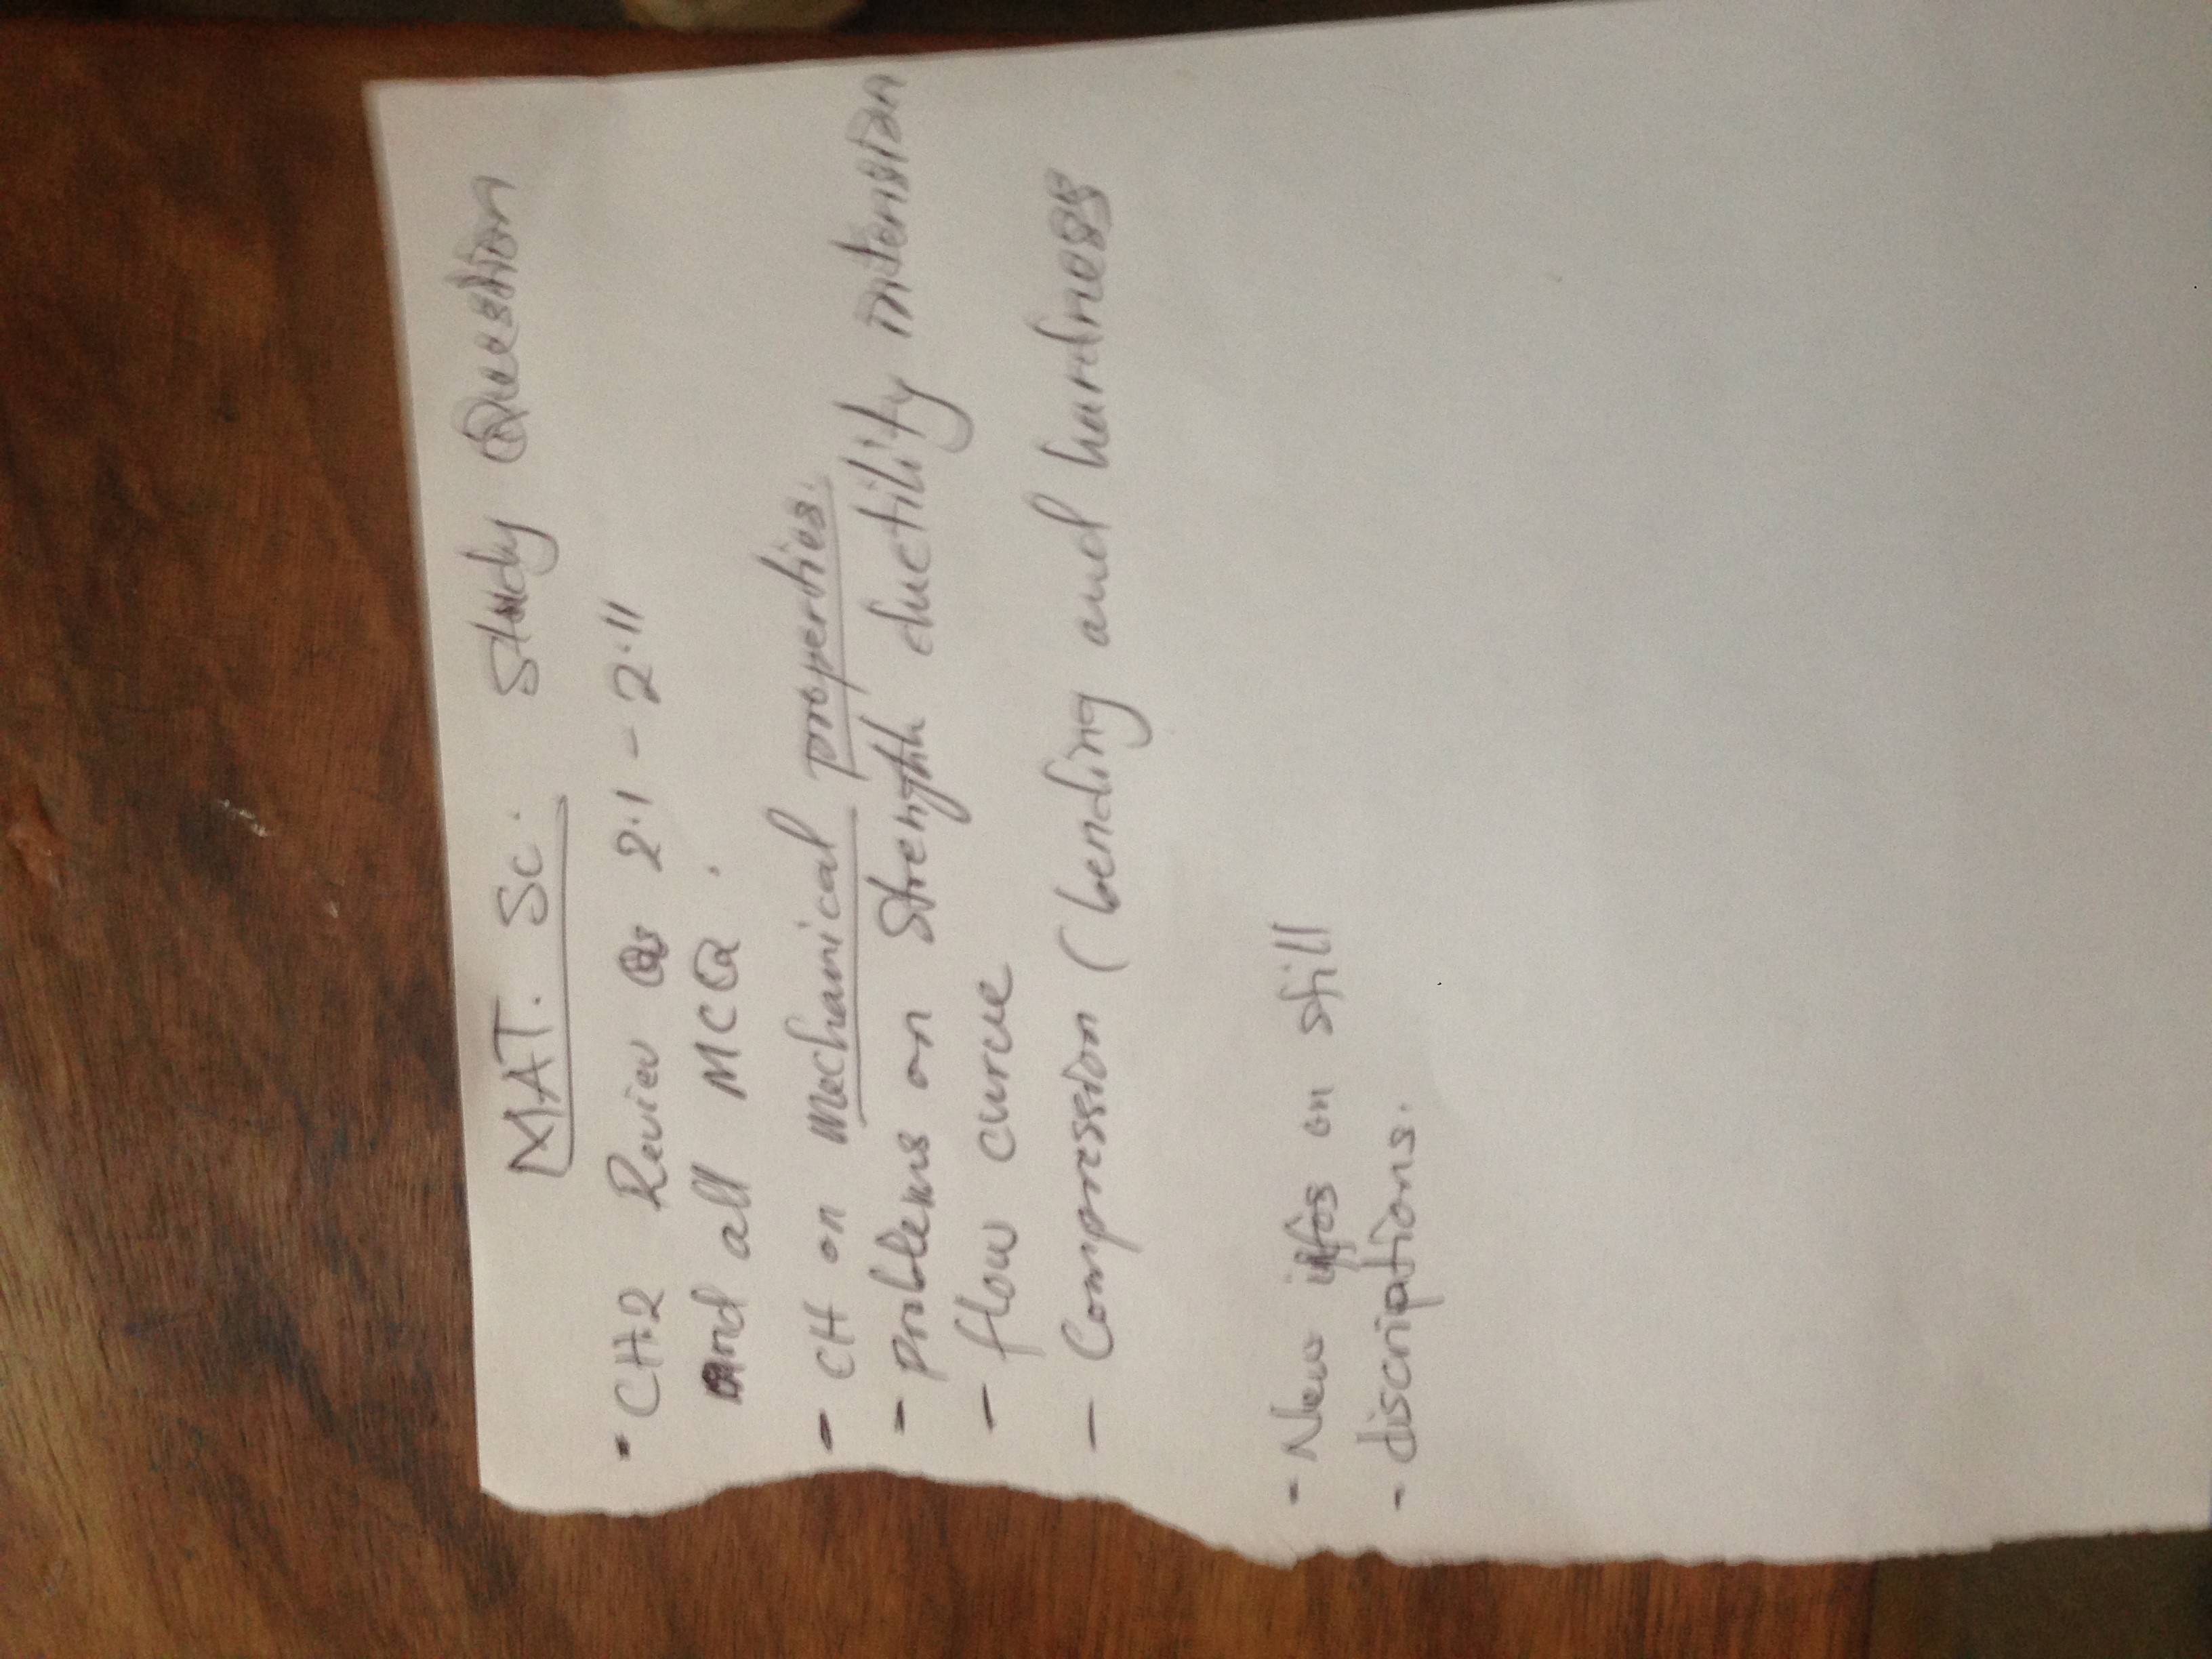 MAT. Sc. Study Question
• CH.2 Review Qs 2.1 - 2.11
and all MCQ.
- CH on Mechanical properties.
- problems on strength ductility intension
- flow curve
- Compression (bending and hardness
- New infos on still
- discriptions.